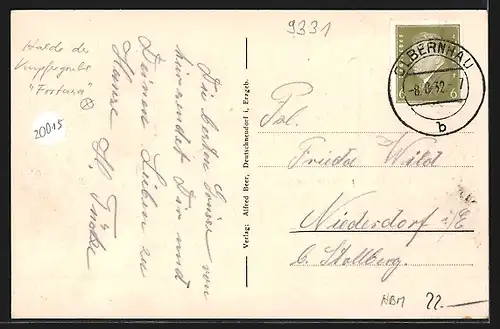 9331
Halde der
Kupfergrube
"Fortuna"
20015
Die besten Grüße von
hier sendet Dir und
Deinen Lieben zu
Hause H.
Verlag: Alfred Beer, Deutschneudorf i. Erzgeb.
OLBERNHAU
32
b
6 6
Frieda Wild
Niederdorf i/E
b. Stollberg.
22.-